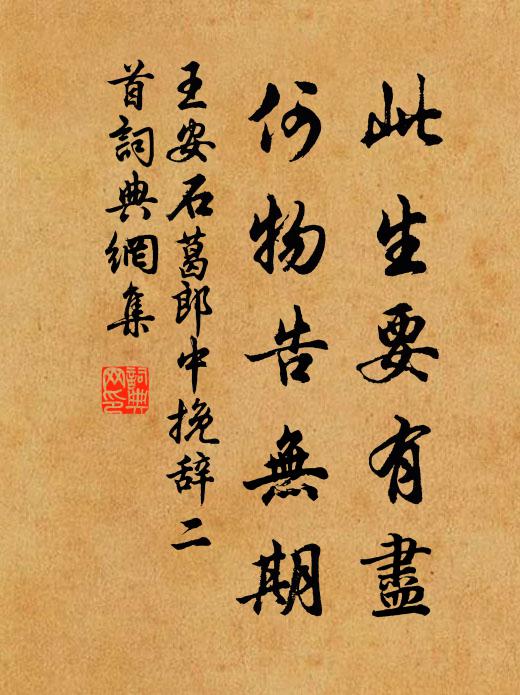 此生要有盡
何物告無期
王安石葛郎中挽辞二
首詞典網集
詞典网印